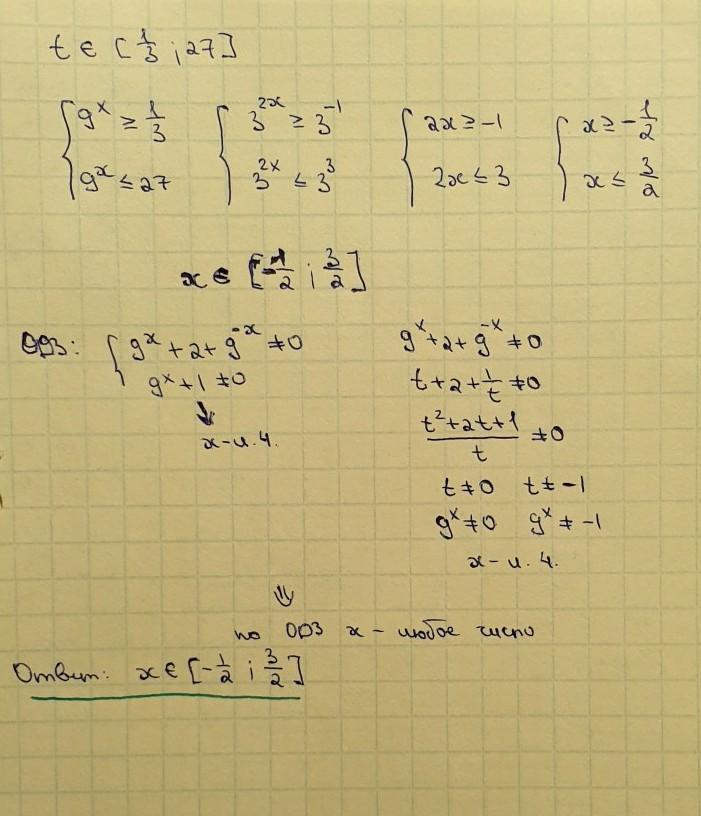 t ∈ [1/3 ; 27]
{ 9^x ≥ 1/3 { 3^2x ≥ 3^-1 { 2x ≥ -1 { x ≥ -1/2
9^x ≤ 27 3^2x ≤ 3^3 2x ≤ 3 x ≤ 3/2
x ∈ [-1/2 ; 3/2]
ОДЗ: { 9^x + 2 + 9^-x ≠ 0
9^x + 1 ≠ 0
↓
x - л. ч.
9^x + 2 + 9^-x ≠ 0
t + 2 + 1/t ≠ 0
(t^2 + 2t + 1)/t ≠ 0
t ≠ 0 t ≠ -1
9^x ≠ 0 9^x ≠ -1
x - л. ч.
⇓
по ОДЗ x - любое число
Ответ: x ∈ [-1/2 ; 3/2]